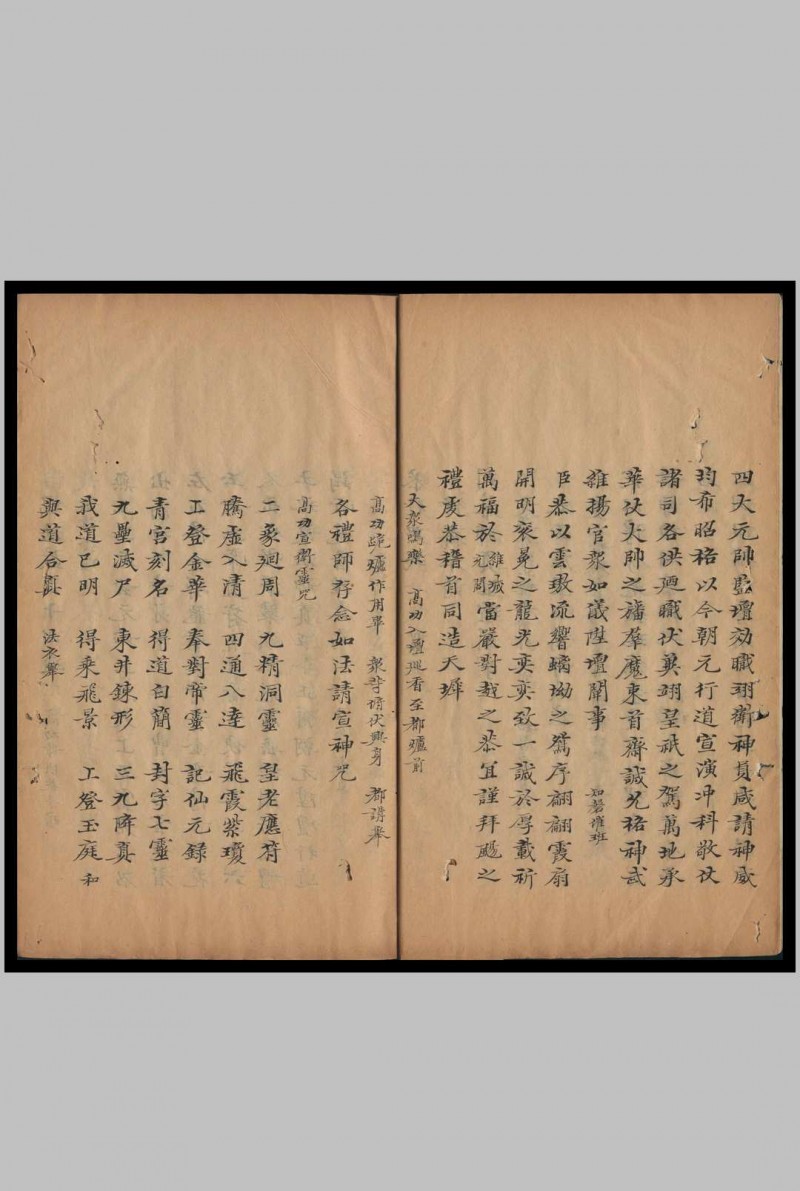 四大元帥監壇効職翊衛神員咸請神威
均希昭格以今朝元行道宣演冲科敬仗
諸司各供廼職伏冀翊皇祇之駕萬地承
華仗大帥之旛羣魔束首齋誠允格神武
維揚官衆如議陞壇關事 如磬催班
臣恭以雲璈流響螭坳之鴛序翩翩霞扇
開明袞冕之龍光奕奕致一誠於厚載祈
萬福於維城元閫當嚴對越之恭宜謹拜颺之
禮虔恭稽首同造天墀
大衆鳴樂 高功入壇熄香至都爐前
高功 爐作用畢 衆等 伏興身 都講舉
各禮師存念如法請宣神咒
高功宣衛靈咒
二象廻周 九精洞靈 皇老應符
騰虛入清 四通八達 飛霞紫瓊
工登金華 奉對帝靈 記仙元錄
青宮刻名 得道白簡 封字七靈
九壘滅尸 東井鍊形 三九降真
我道已明 得乘飛景 工登玉庭 和
與道合眞 法衣畢